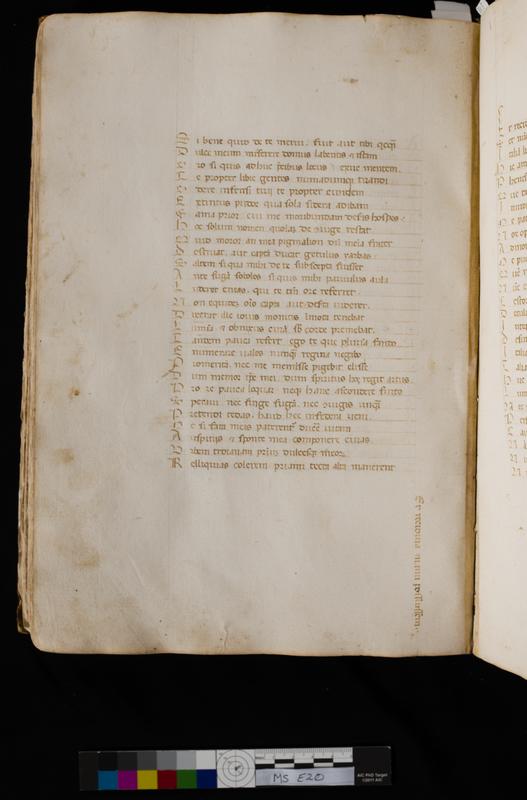 Si bene quid de te merui, fuit aut tibi qcqȝ
Dulce meum miserere domus labentis & istam
Oro si quis adhuc p̄cibus locus exue mentem.
Te propter libice gentes numadumqȝ tiranni
Odere infensi tirij te propter eundem
Extintus pudor qua sola sidera adibam
Fama prior. cui me moribundam deseris hospes.
Hoc solum nomen quoniaʒ de ɔiuge restat
Quid moror an mea pigmalion dū menia frater
Destruat. aut captā ducat getulus iarbas
Saltem si qua mihi de te suscepta fuisset
Ante fugā soboles si quis mihi paruulus aula
Luderet eneas. qui te tn̄ ore referret
Non equidē oīo capta aut deserta uiderer.
Dixerat ille iouis monitis īmota tenebat
Lumina & obnixus curā. sb̄ corde premebat.
Tandem pauca refert. ego te que plurīa fando
Enumerare uales nūqȝ regina negabo
Promeritā. nec me meminisse pigebit elisse
Dum memor ip̄e mei. dum spiritus hos regit artus.
Pro re pauca loquar. neqȝ hanc abscondere furto
Speraui. nec finge fugā. nec ɔiugis unqȝ
Pretendi tedas. haud hec in federa ueni.
Me si fata meis paterent᷑ ducē uitam
Auspitiis & sponte mea componere curas
Urbem troianam primū dulcesqȝ meor.
Relliquias colerem priami tecta alta manerent
Et recidiua manu posuissem.